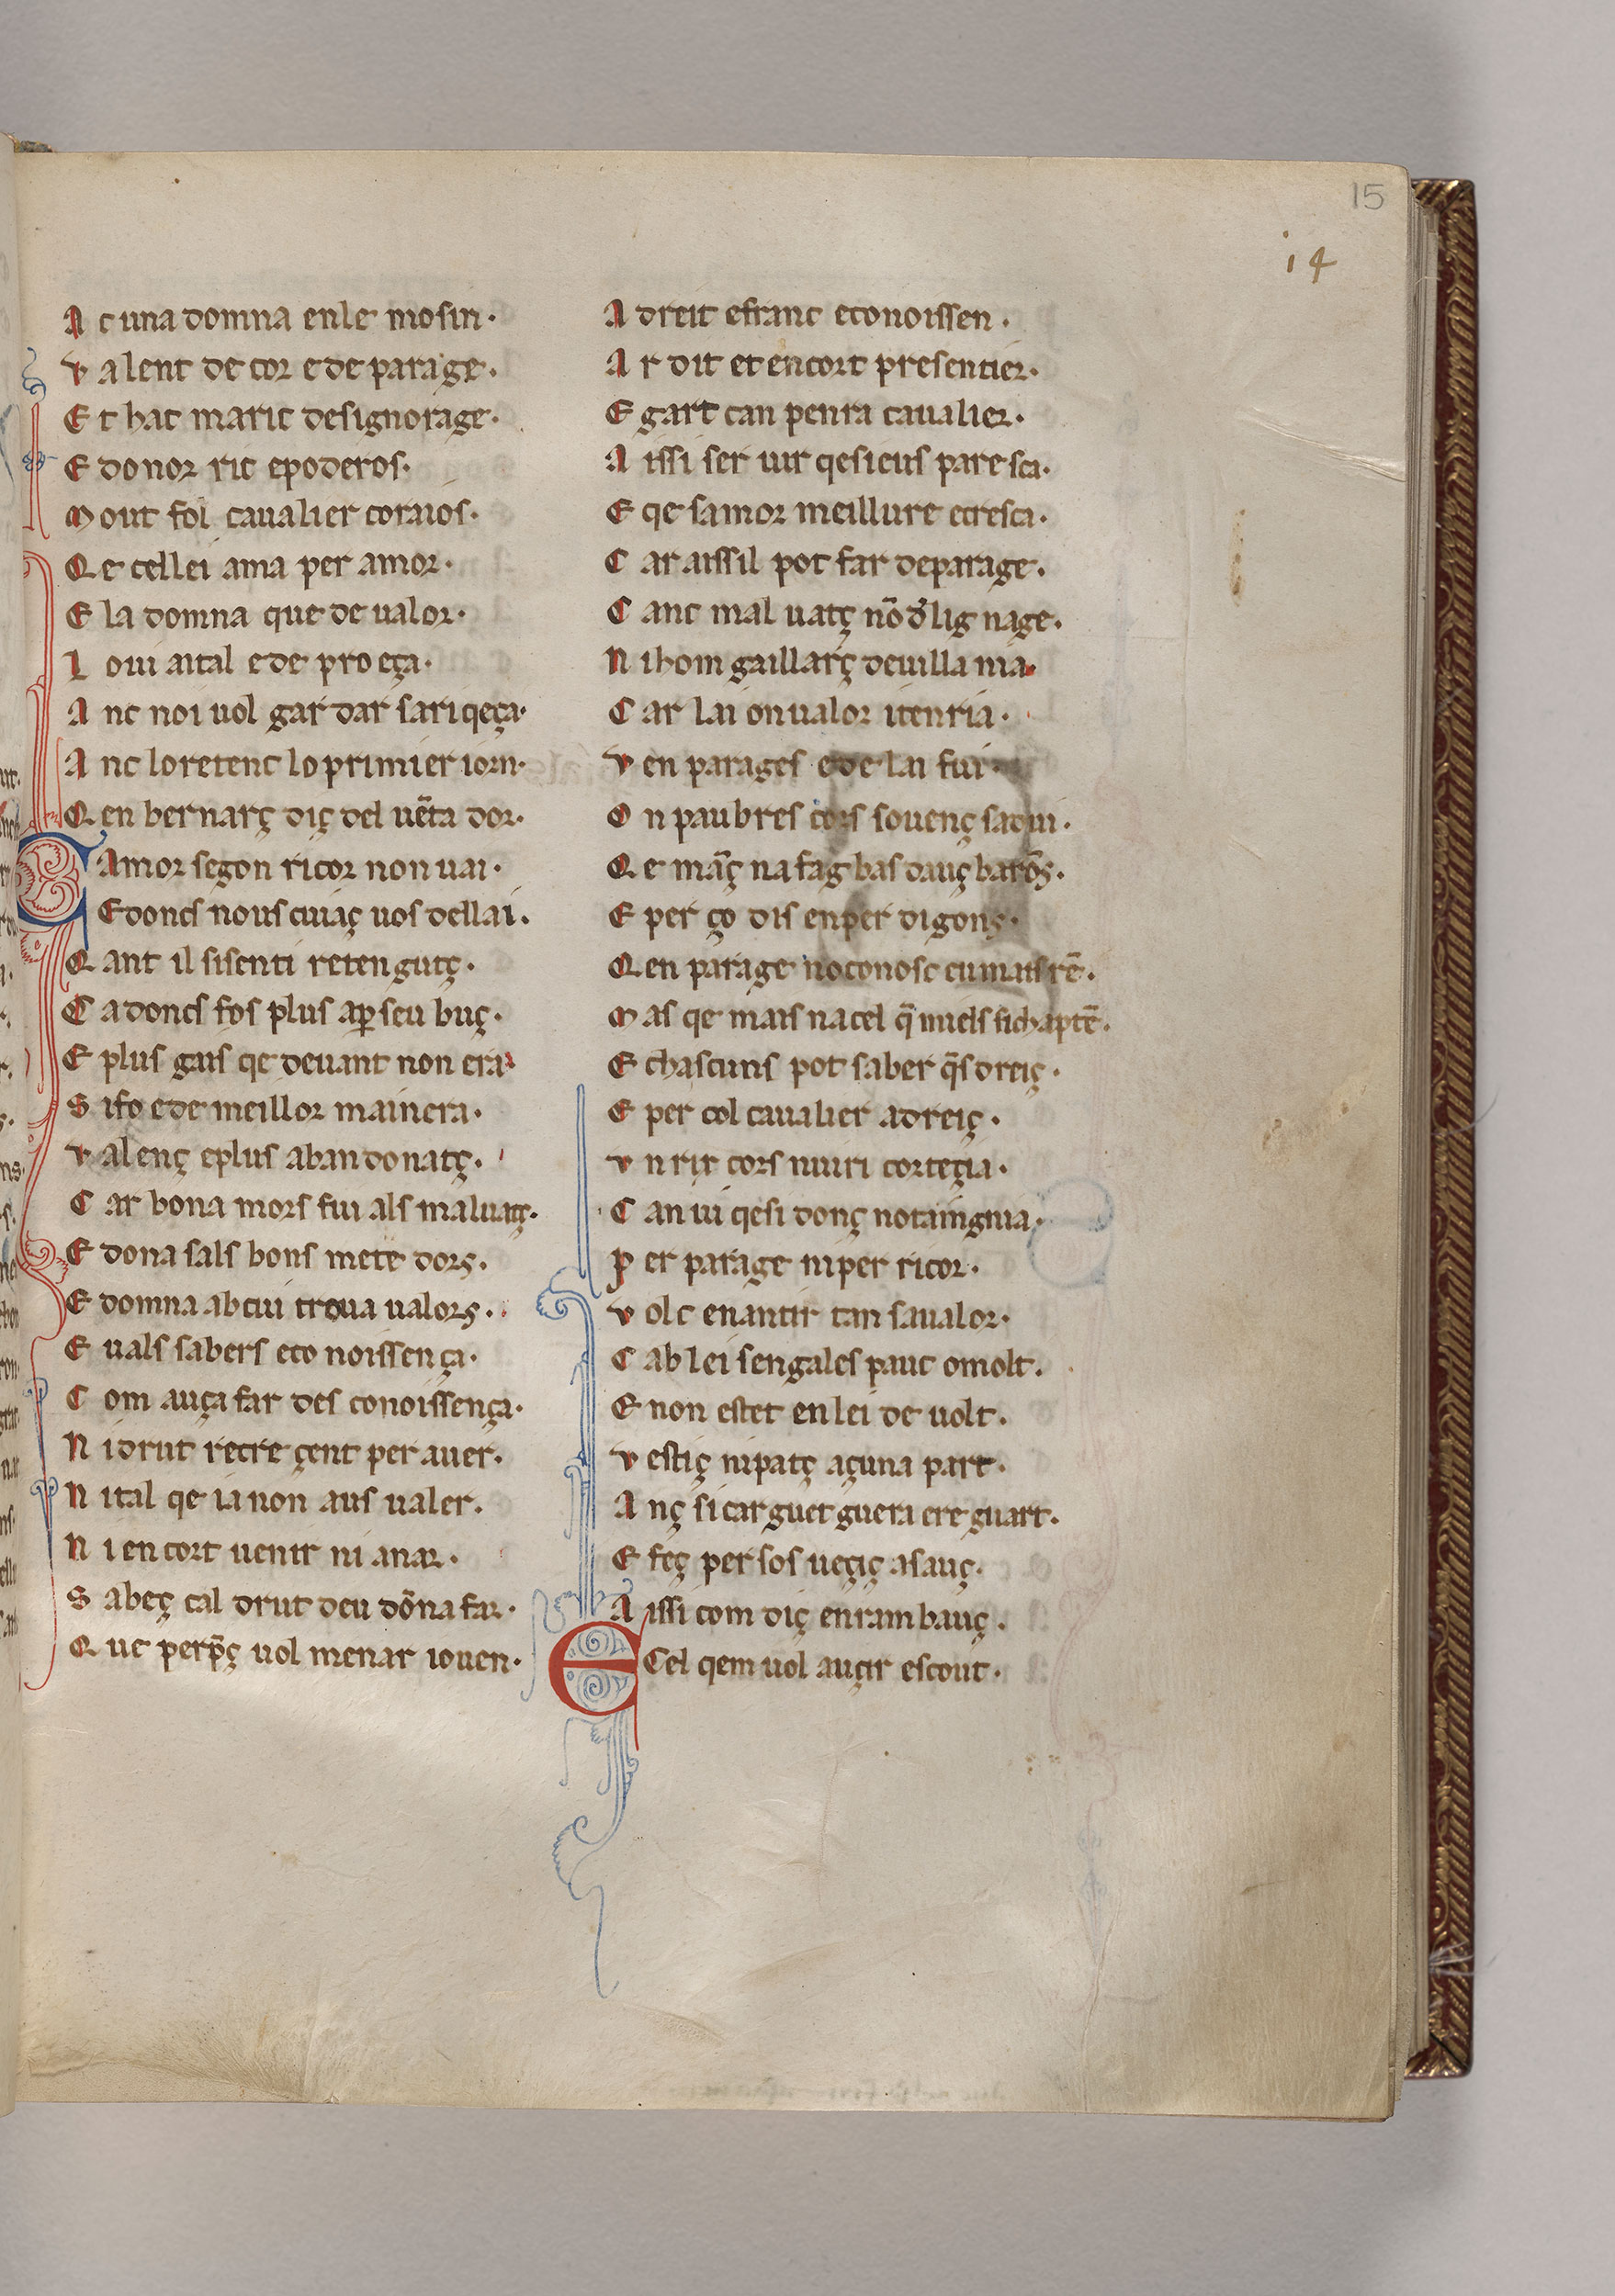 15
i4
A c una domna enle mosin·
V alent de cor e de parage·
E t hac maric designorage·
E donor ric epoderos·
M out foi caualier coraios·
Q e cellei ama per amor·
E la domna que de ualor·
L oui aital e de proeça·
A nc noi uol gardar sariqeça·
A nc loretenc loprimier iorn·
Q en bernarç diç del uẽta dor·
Amor segon ricor non uai·
E doncs nous cuiaç uos dellai·
Q ant il sisenti retengutç·
C adoncs fos plus aꝑseu buç·
E plus gais qe deuant non era
S ifo ede meillor mainera·
V alenç eplus abandonatç·
C ar bona mors fui als maluatç·
E dona sals bons mete dors·
E domna abcui troua ualors·
E uals sabers eco noissença·
C om auça far des conoissença·
N i drut recre çent per auer·
N ital qe ia non aus ualer·
N i en cort uenir ni anar·
S abeç cal drut deu dõna far·
Q ue perp̃ç uol menar iouen·
A dreit efranc econoissen·
A r dit et encort presentier·
E gart can penra caualier·
A issi ser uir qesieus paresca·
E qe samor meillure ecresca·
C ar aissil pot far deparage·
C anc mal uatç nõ d̃ lignage·
N ihom gaillarç deuilla nia
C ar lai onualor itenria·
V en parages ede lai fui·
O n paubres cors souenç sadui·
Q e mãç na fag bas dauç barõs·
E per ço dis enper digons·
Q en parage noconosc eu mais rẽ·
M as qe mais nacel q̃ miels sichaptẽ·
E chascuns pot saber q̃s dreiç·
E per col caualier adreiç·
V n ric cors nuiri corteçia·
C an ui qesi donç notaingnia·
P er parage niper ricor·
V olc enantir tan saualor·
C ab lei sengales pauc omolt·
E non estet enlei de uolt·
V estiç nipatç açuna part·
A nç si carguet guera ere guart·
E feç per sos ueçiç asauç·
A issi com diç enram bauç·
E Cel qem uol auçir escout·